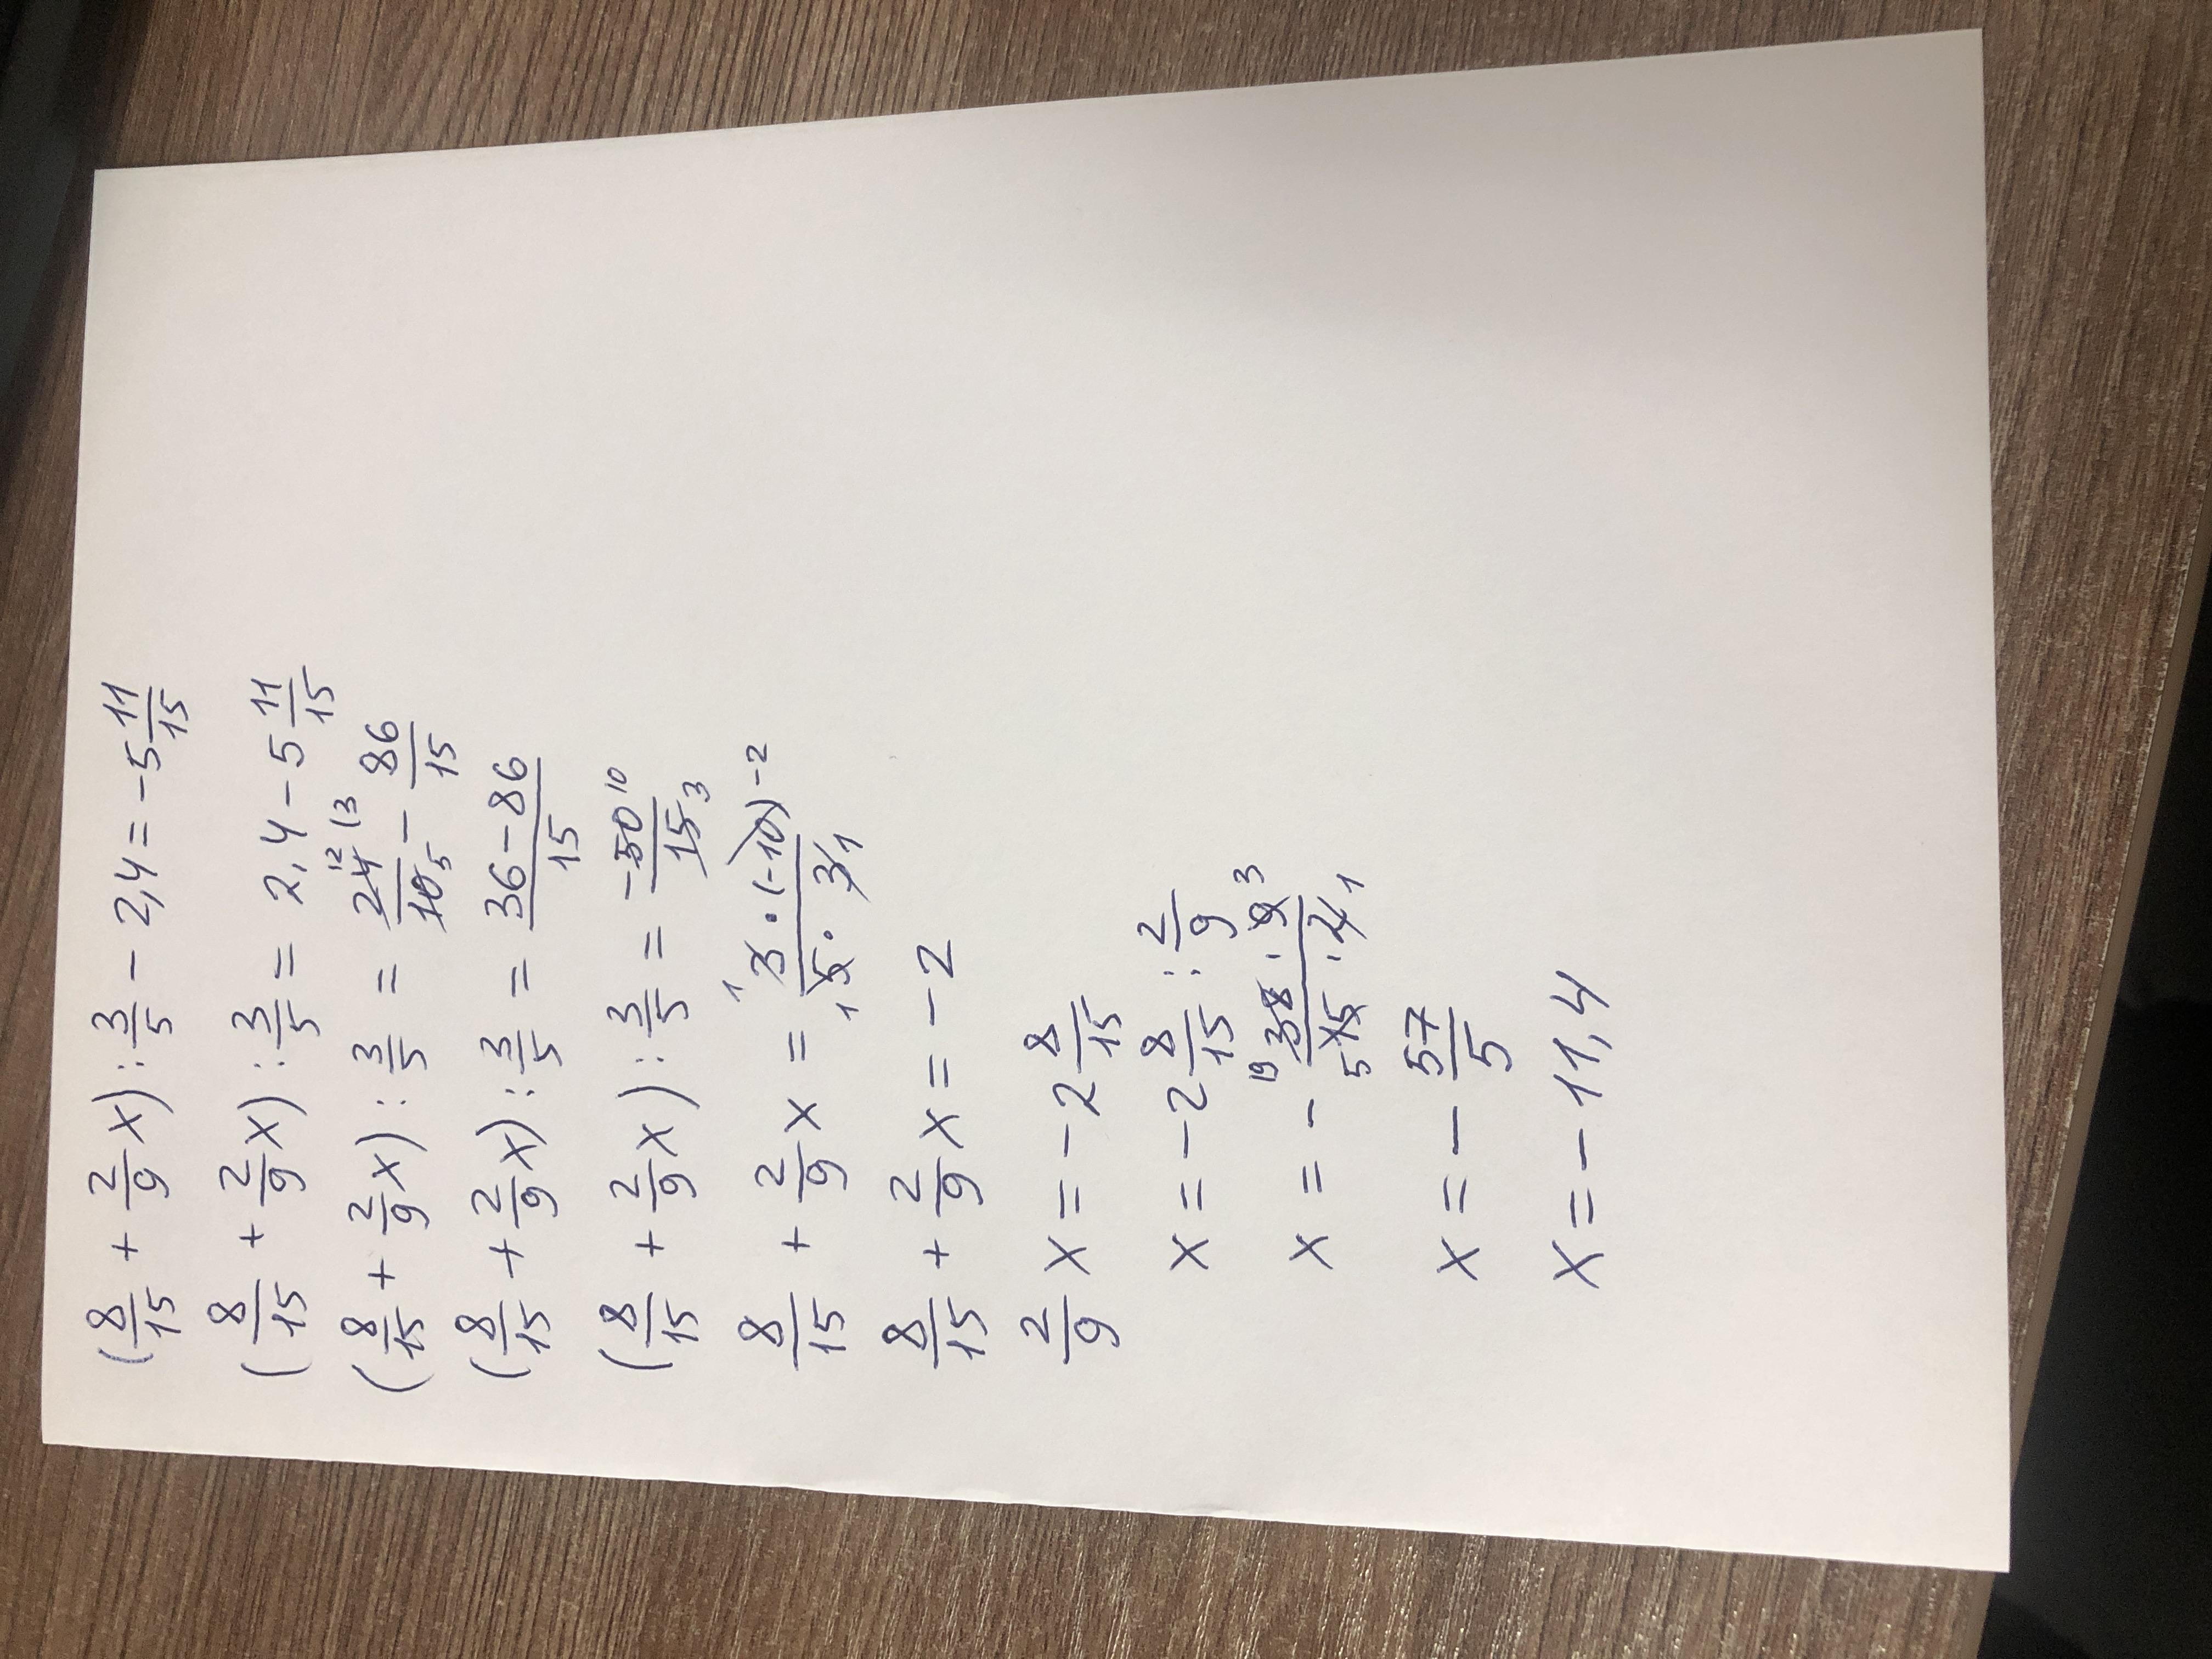 (8/15 + 2/9 x) : 3/5 - 2,4 = -5 11/15
(8/15 + 2/9 x) : 3/5 = 2,4 - 5 11/15
(8/15 + 2/9 x) : 3/5 = 24 12 (3 / 10 5 - 86/15
(8/15 + 2/9 x) : 3/5 = 36-86/15
(8/15 + 2/9 x) : 3/5 = - 50 10 / 15 3
8/15 + 2/9 x = 1 3 · (-10) -2 / 1 5 · 3 1
8/15 + 2/9 x = -2
2/9 x = -2 8/15
x = -2 8/15 : 2/9
x = - 19 38 · 9 3 / 5 15 · 2 1
x = - 57/5
x = -11,4